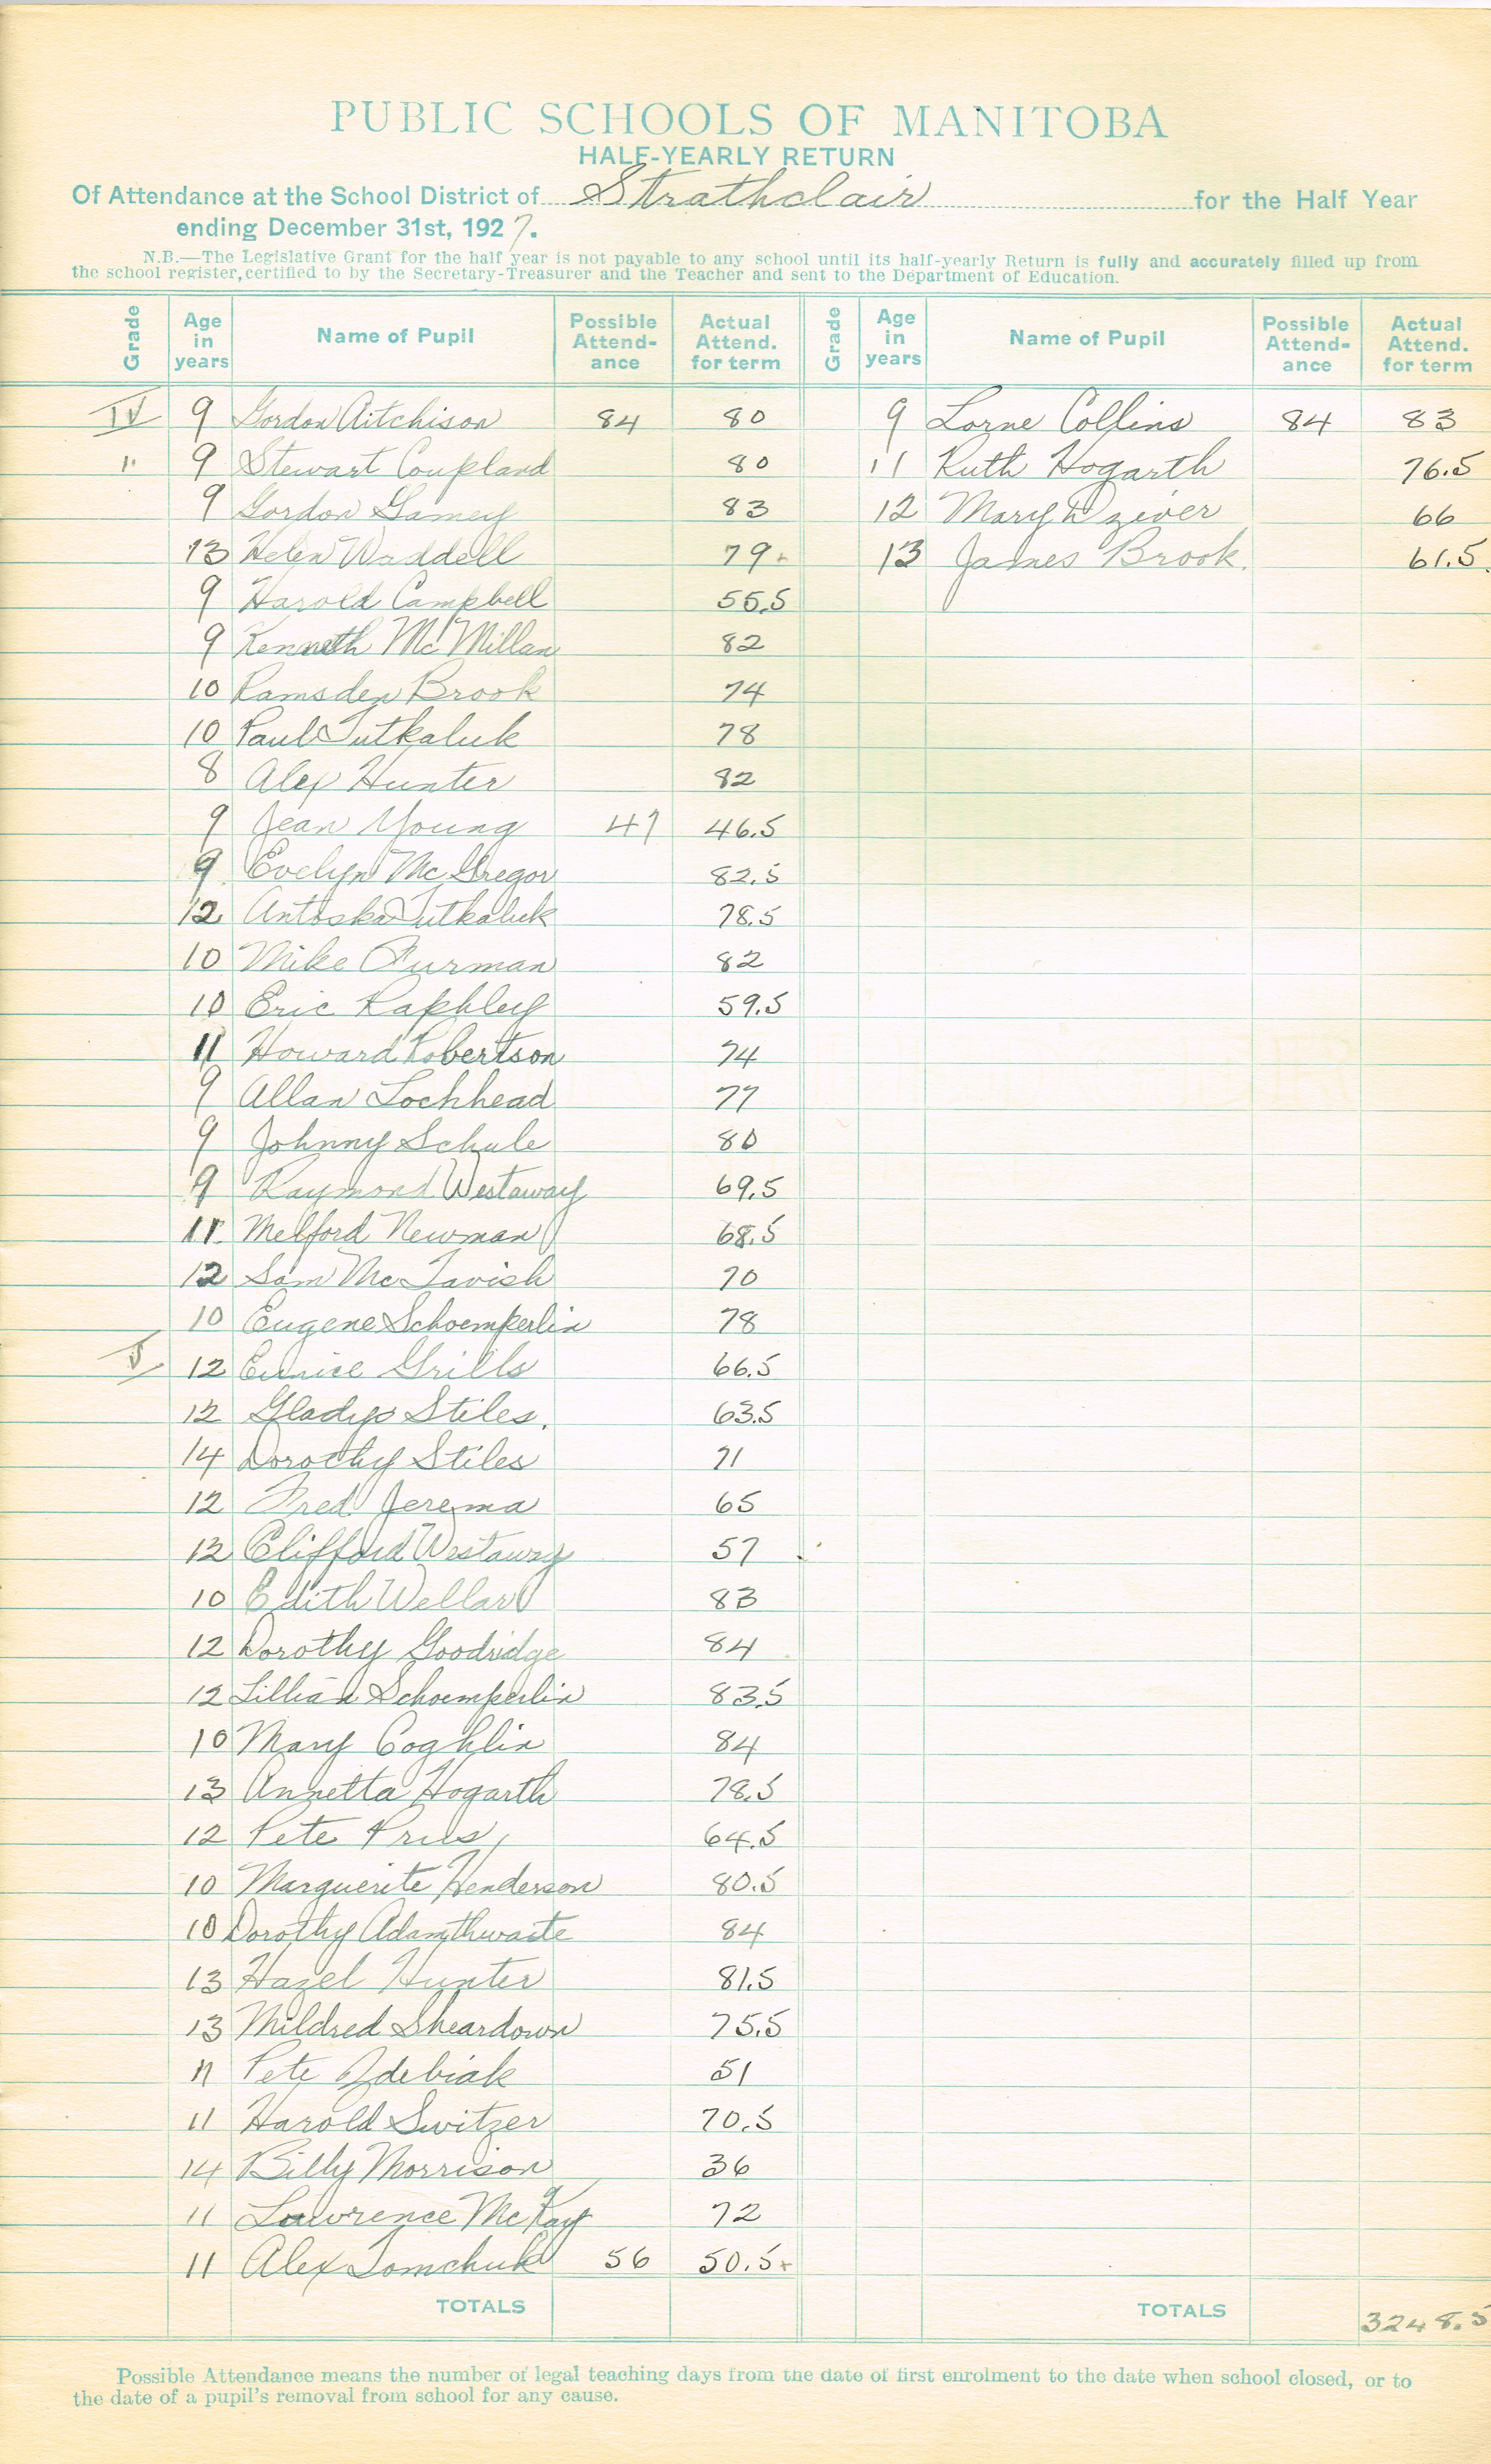 PUBLIC SCHOOLS OF MANITOBA
HALF-YEARLY RETURN
Of Attendance at the School District of Strathclair for the Half Year
ending December 31st, 1927.
N.B.—The Legislative Grant for the half year is not payable to any school until its half-yearly Return is fully and accurately filled up from
the school register, certified to by the Secretary-Treasurer and the Teacher and sent to the Department of Education.
Grade Age in years Name of Pupil Possible Attend-ance Actual Attend. for term Grade Age in years Name of Pupil Possible Attend-ance Actual Attend. for term
IV 9 Gordon Aitchison 84 80 9 Lorne Collins 84 83
" 9 Stewart Coupland 80 11 Ruth Hogarth 76.5
9 Gordon Gamey 83 12 Mary Dziver 66
13 Helen Waddell 79 13 James Brook. 61.5
9 Harold Campbell 55.5
9 Kenneth McMillan 82
10 Ramsden Brook 74
10 Paul Tutkaluk 78
8 Alex Hunter 82
9 Jean Young 47 46.5
9 Evelyn McGregor 82.5
12 Antoska Tutkaluk 78.5
10 Mike Furman 82
10 Eric Raphley 59.5
11 Howard Robertson 74
9 Allan Lochhead 77
9 Johnny Schule 80
9 Raymond Westaway 69.5
11 Melford Newman 68.5
12 Sam McTavish 70
10 Eugene Schoemperlin 78
V 12 Eunice Grills 66.5
12 Gladys Stiles. 63.5
14 Dorothy Stiles 71
12 Fred Jerema 65
12 Clifford Westaway 57
10 Edith Wellard 83
12 Dorothy Goodridge 84
12 Lillian Schoemperlin 83.5
10 Mary Coghlin 84
13 Annetta Hogarth 78.5
12 Pete Prus 64.5
10 Marguerite Henderson 80.5
10 Dorothy Adamthwaite 84
13 Hazel Hunter 81.5
13 Mildred Sheardown 75.5
11 Pete Zdebiak 51
11 Harold Switzer 70.5
14 Billy Morrison 36
11 Lawrence McKay 72
11 Alex Tomchuk 56 50.5+
TOTALS TOTALS 3248.5
Possible Attendance means the number of legal teaching days from the date of first enrolment to the date when school closed, or to
the date of a pupil's removal from school for any cause.